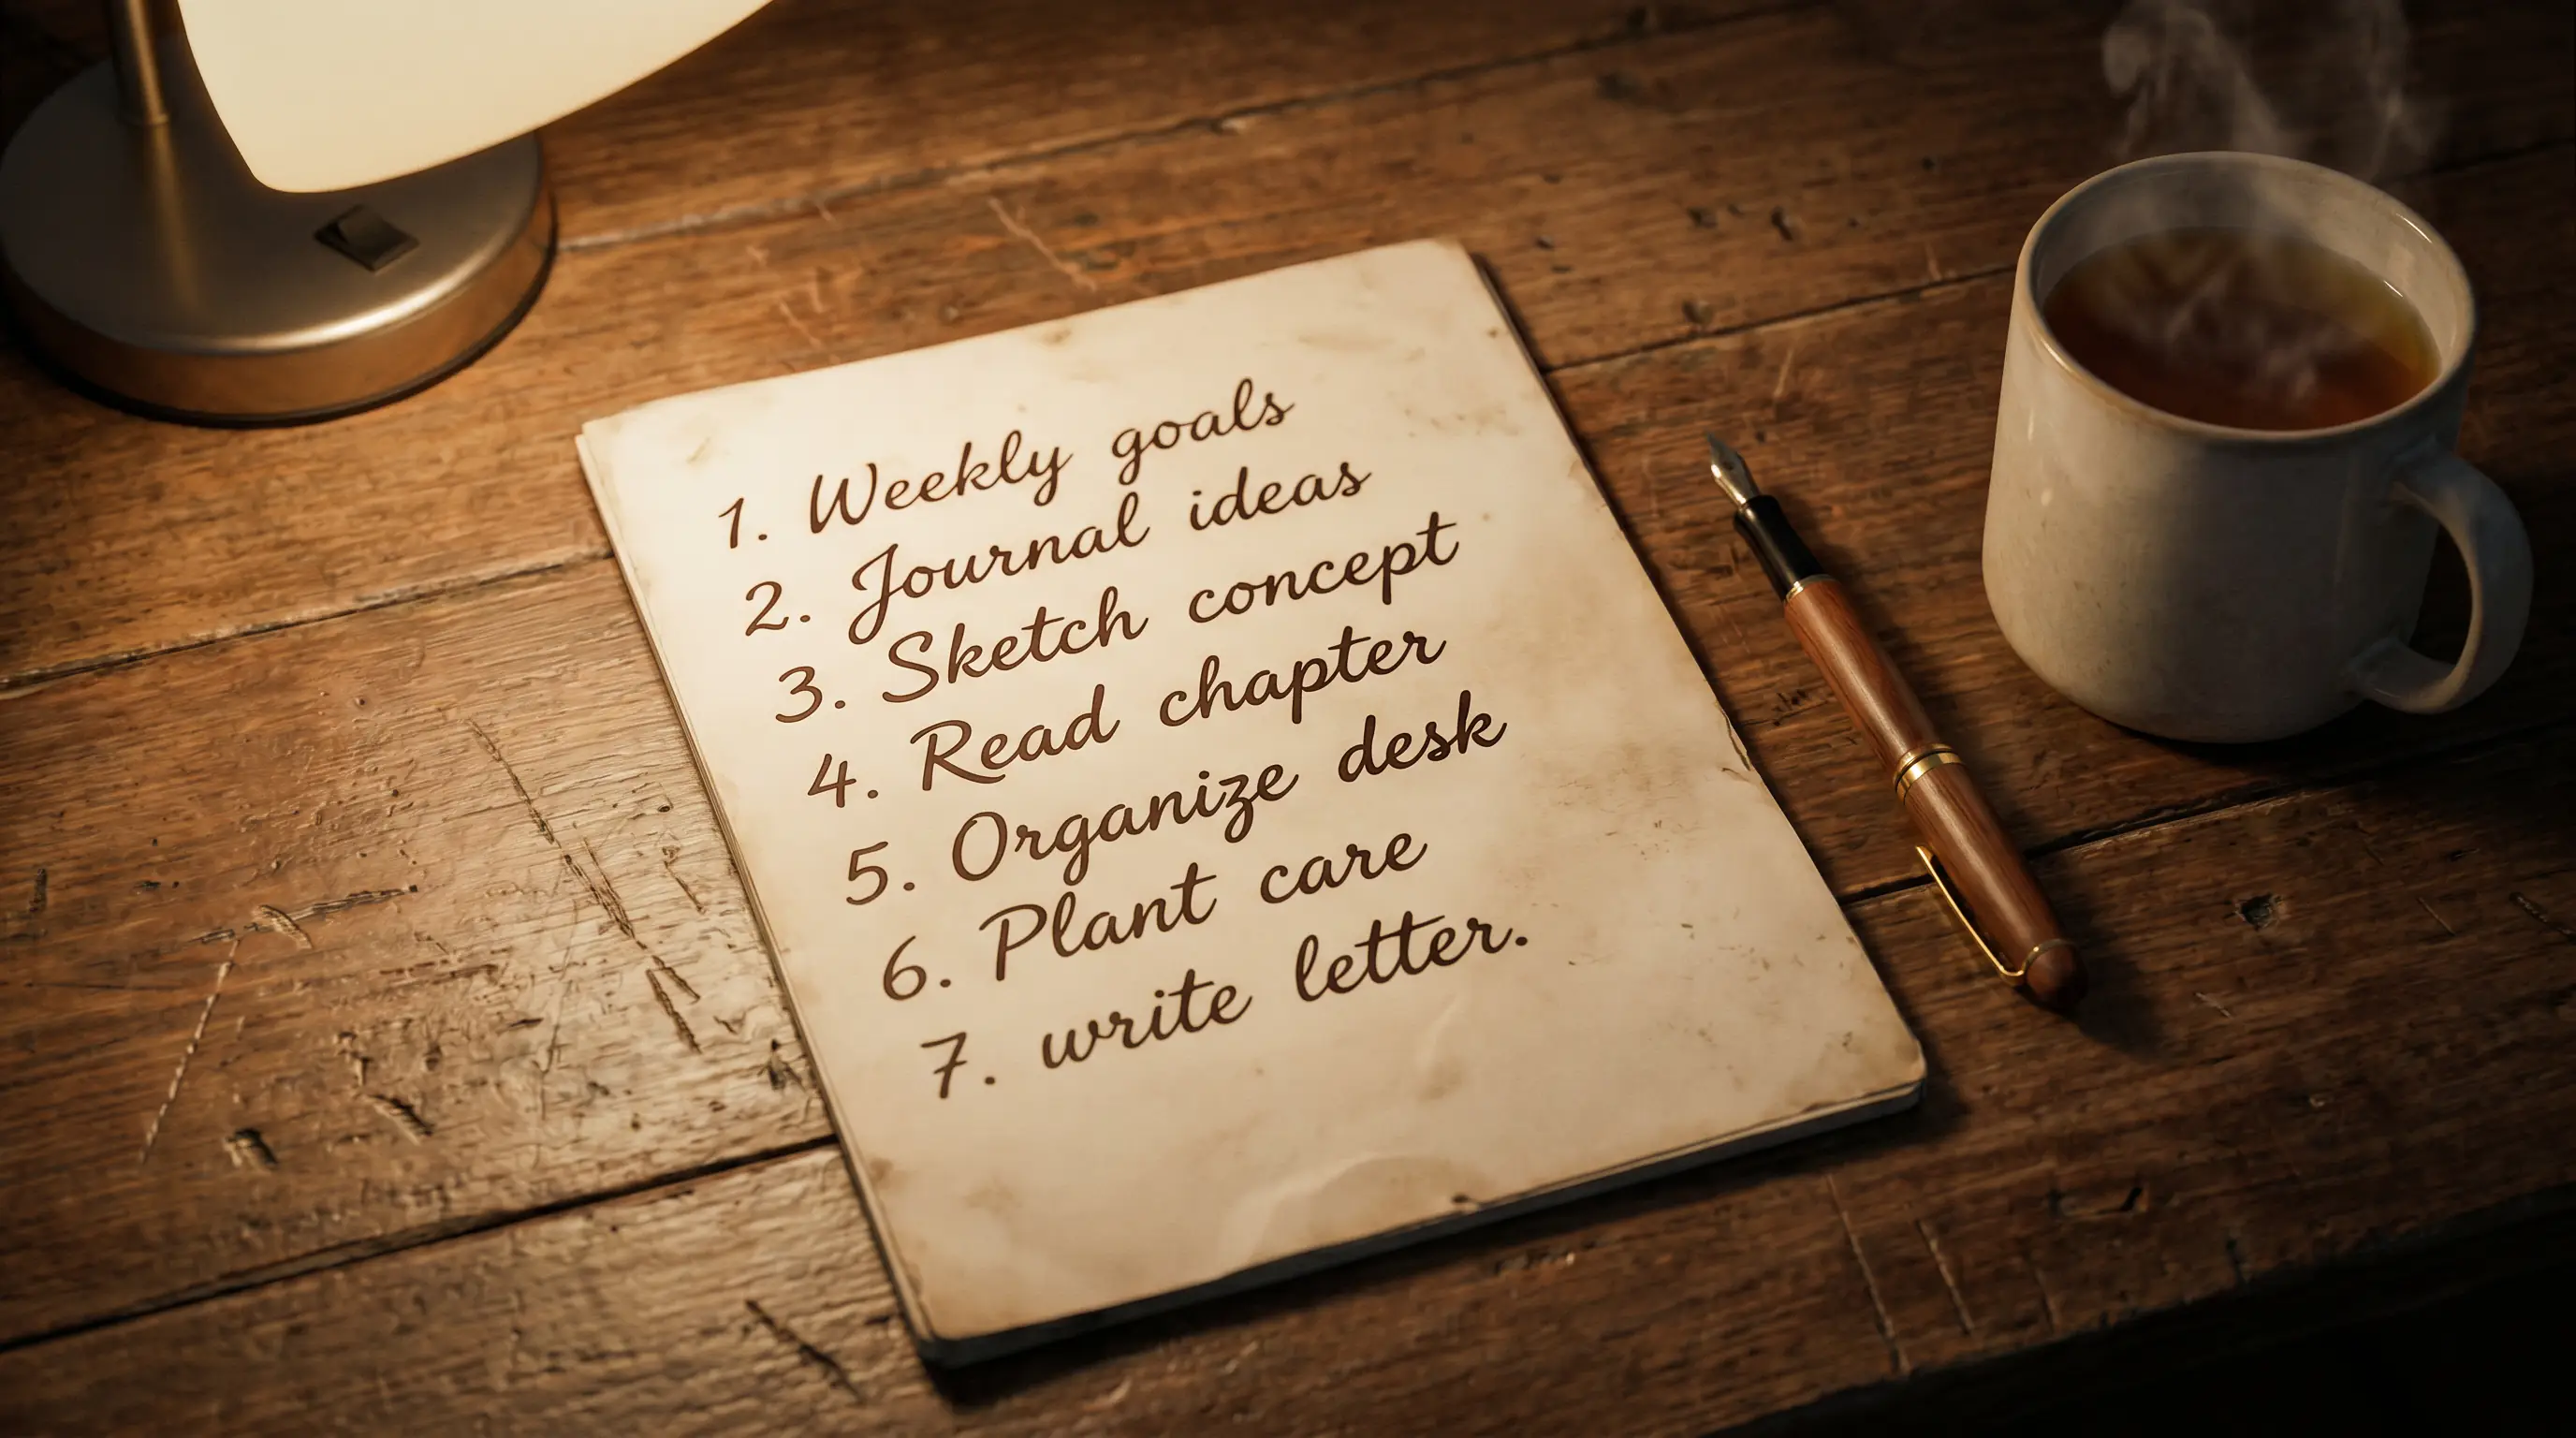 1. Weekly goals
2. Journal ideas
3. Sketch concept
4. Read chapter
5. Organize desk
6. Plant care
7. write letter.